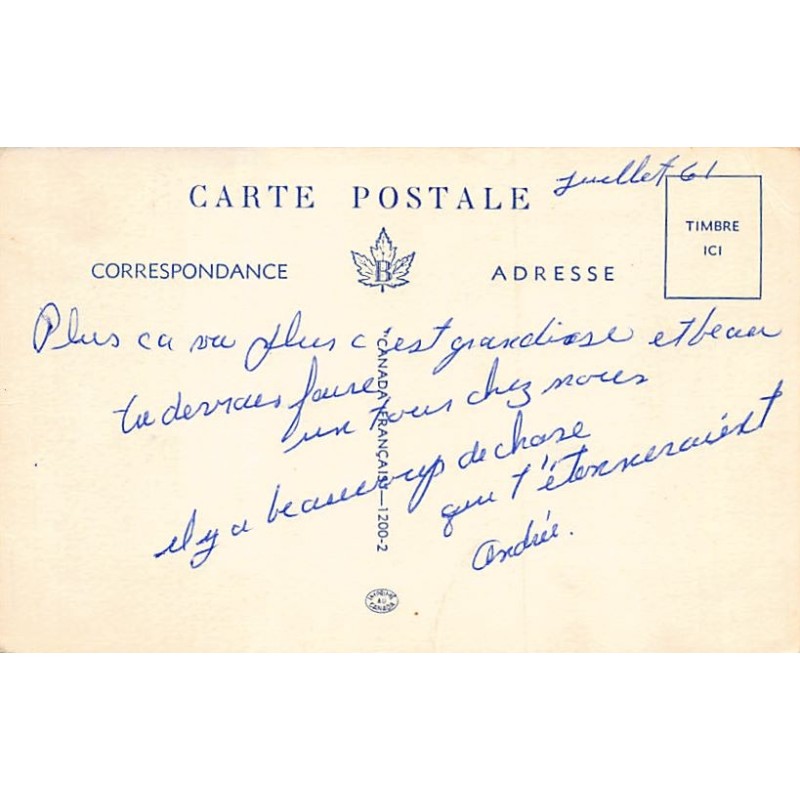 juillet 61
CARTE POSTALE
TIMBRE
ICI
CORRESPONDANCE
B
ADRESSE
Plus ca va plus c'est grandiose et beau
tu devrais faire
un tour chez nous
il y a beaucoup de chose
qui t'étonneraient
Andrée.
"CANADA FRANÇAIS"—1200-2
IMPRIMÉ
AU
CANADA